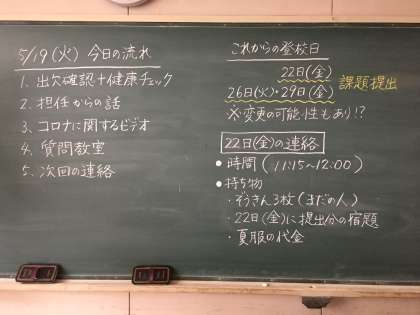 5/19(火) 今日の流れ
1. 出欠確認+健康チェック
2. 担任からの話
3. コロナに関するビデオ
4. 質問教室
5. 次回の連絡
これからの登校日
22日(金)
26日(火)・29日(金) 課題提出
※変更の可能性もあり!?
22日(金)の連絡
● 時間(11:15~12:00)
● 持ち物
・ぞうきん3枚(まだの人)
・22日(金)に提出分の宿題
・夏服の代金